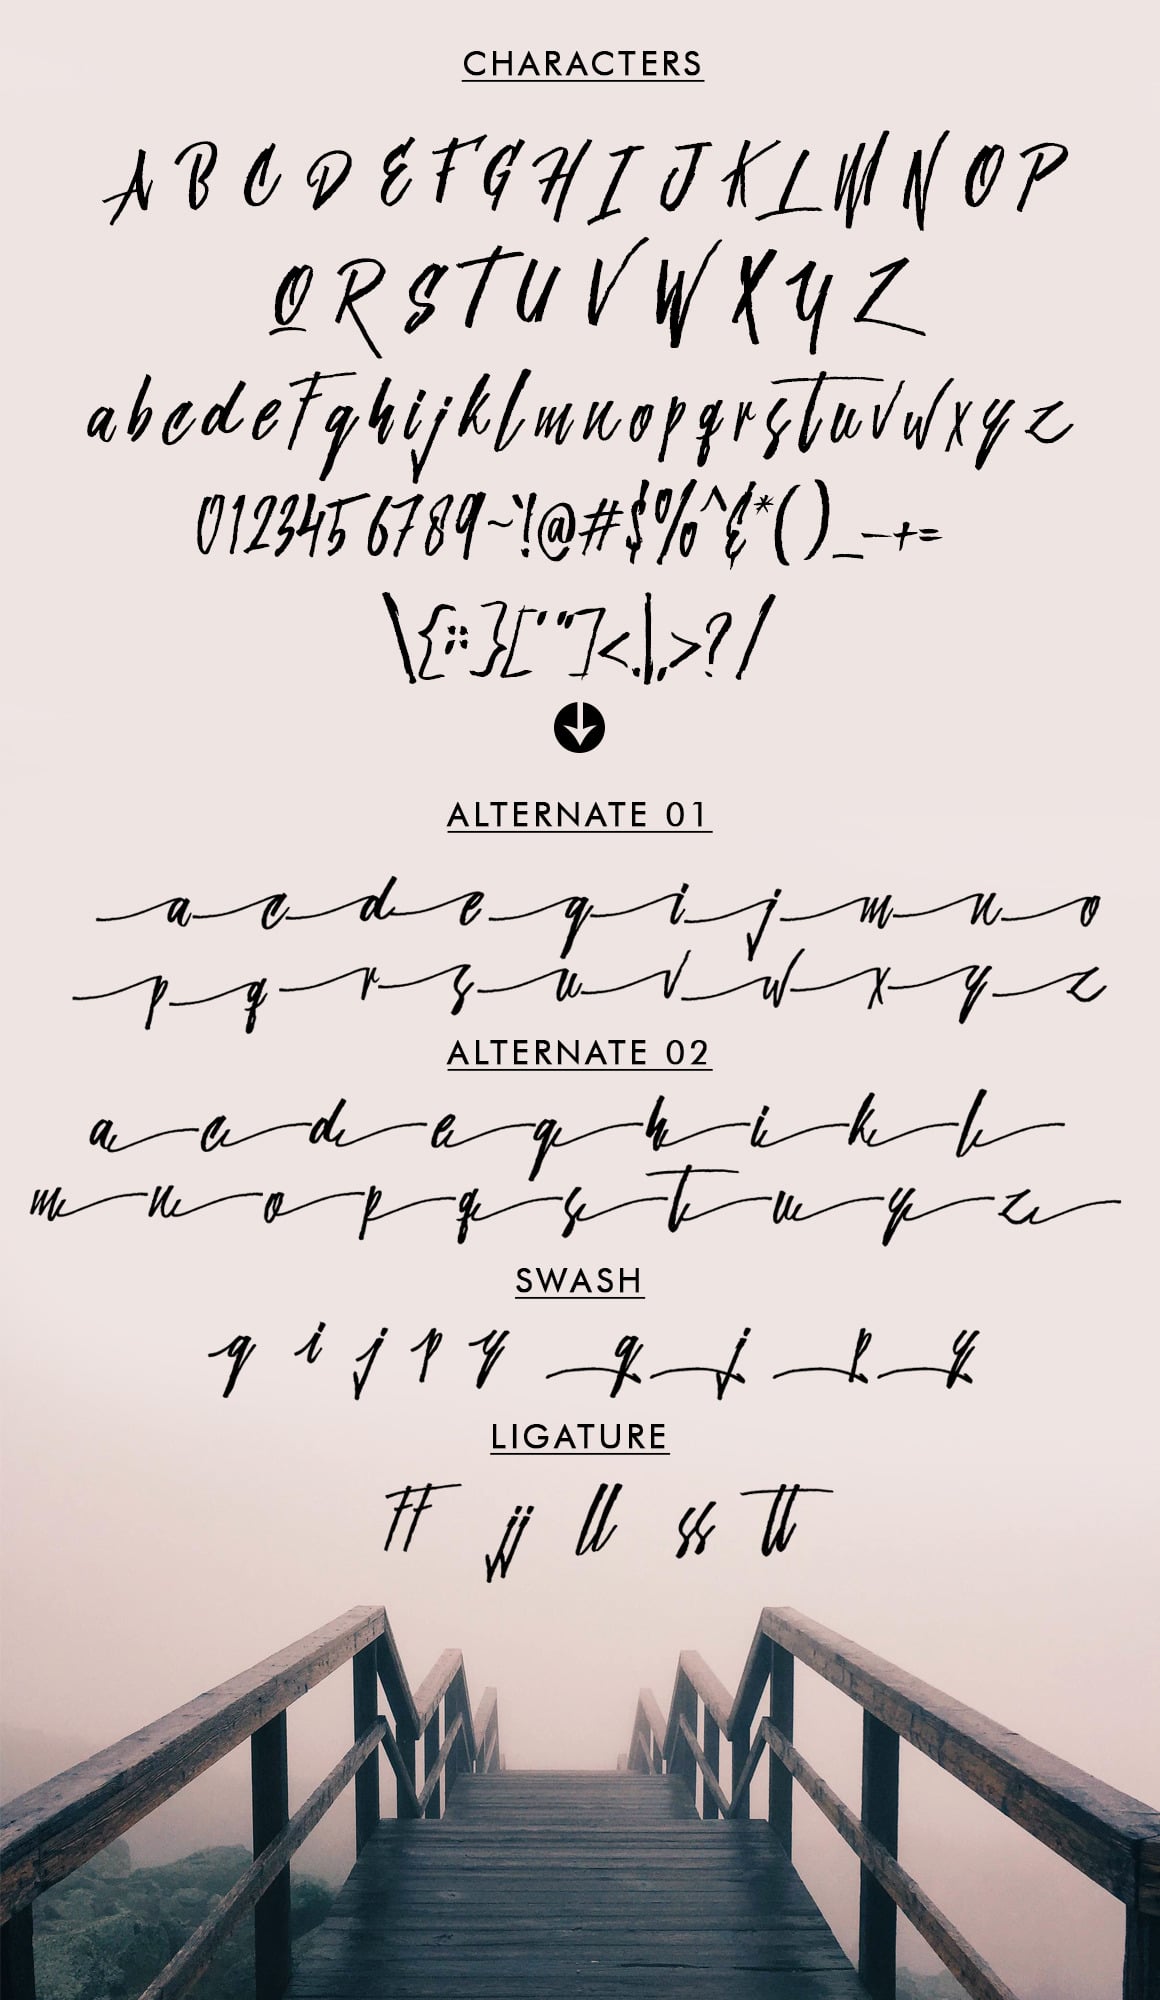 CHARACTERS
A B C D E F G H I J K L M N O P
Q R S T U V W X Y Z
a b c d e f g h i j k l m n o p q r s t u v w x y z
0 1 2 3 4 5 6 7 8 9 ~ ` ! @ # $ % ^ & * ( ) _ - + =
\ { : ; } [ ' " ] < . | , > ? /
ALTERNATE 01
a c d e g i j m n o
p q r s u v w x y z
ALTERNATE 02
a c d e g h i k l
m n o p q s t u y z
SWASH
g i j p y g j p y
LIGATURE
ff jj ll ss tt